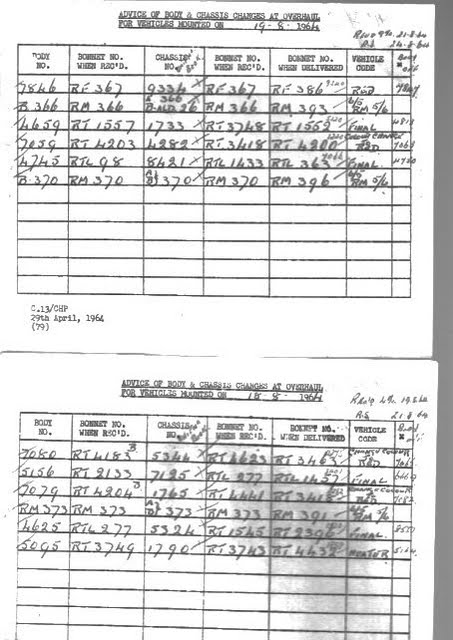 ADVICE OF BODY & CHASSIS CHANGES AT OVERHAUL
FOR VEHICLES MOUNTED ON 19-8-1964
21-8-64
24-8-64
BODY NO. BONNET NO. WHEN REC'D. CHASSIS NO. BONNET NO. WHEN REC'D. BONNET NO. WHEN DELIVERED VEHICLE CODE
7846 RF 367 9334 RF 367 RF 386 R&D
B.366 RM 366 RM 366 RM 393 RM 5/6
4659 RT 1557 1733 RT 3748 RT 1552 FINAL
7059 RT 4203 4282 RT 3418 RT 4200
4745 RTL 98 8421 RTL 1433 RTL 363 FINAL
B.370 RM 370 370 RM 370 RM 396 RM 5/6
C.13/CHP
29th April, 1964
(79)
ADVICE OF BODY & CHASSIS CHANGES AT OVERHAUL
FOR VEHICLES MOUNTED ON 18-8-1964
21-8-64
BODY NO. BONNET NO. WHEN REC'D. CHASSIS NO. BONNET NO. WHEN REC'D. BONNET NO. WHEN DELIVERED VEHICLE CODE
7050 RT 4183 5344 RT 4623 RT 3463
5156 RT 2133 7125 RTL 277 RTL 1457 FINAL
7079 RT 4204 1765 RT 4441 RT 3418
RM 373 RM 373 373 RM 373 RM 391 RM 5/6
4625 RTL 277 5324 RT 1545 RT 2396 FINAL
5095 RT 3749 1790 RT 3743 RT 4432 HEATER